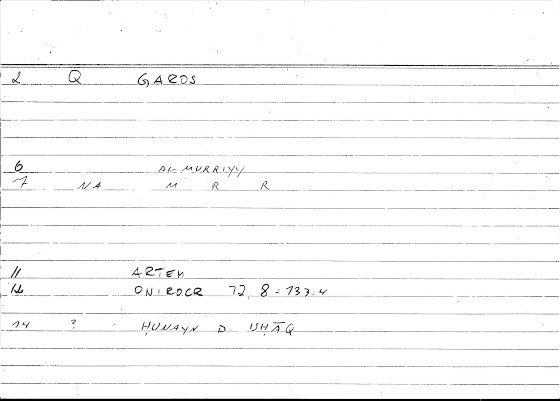 2 Q GAROS
6 AL-MURRIYY
7 NA M R R
11 ARTEM
12 ONIROCR 72, 8 = 137.4
14 ? ḤUNAYN B. ISḤĀQ